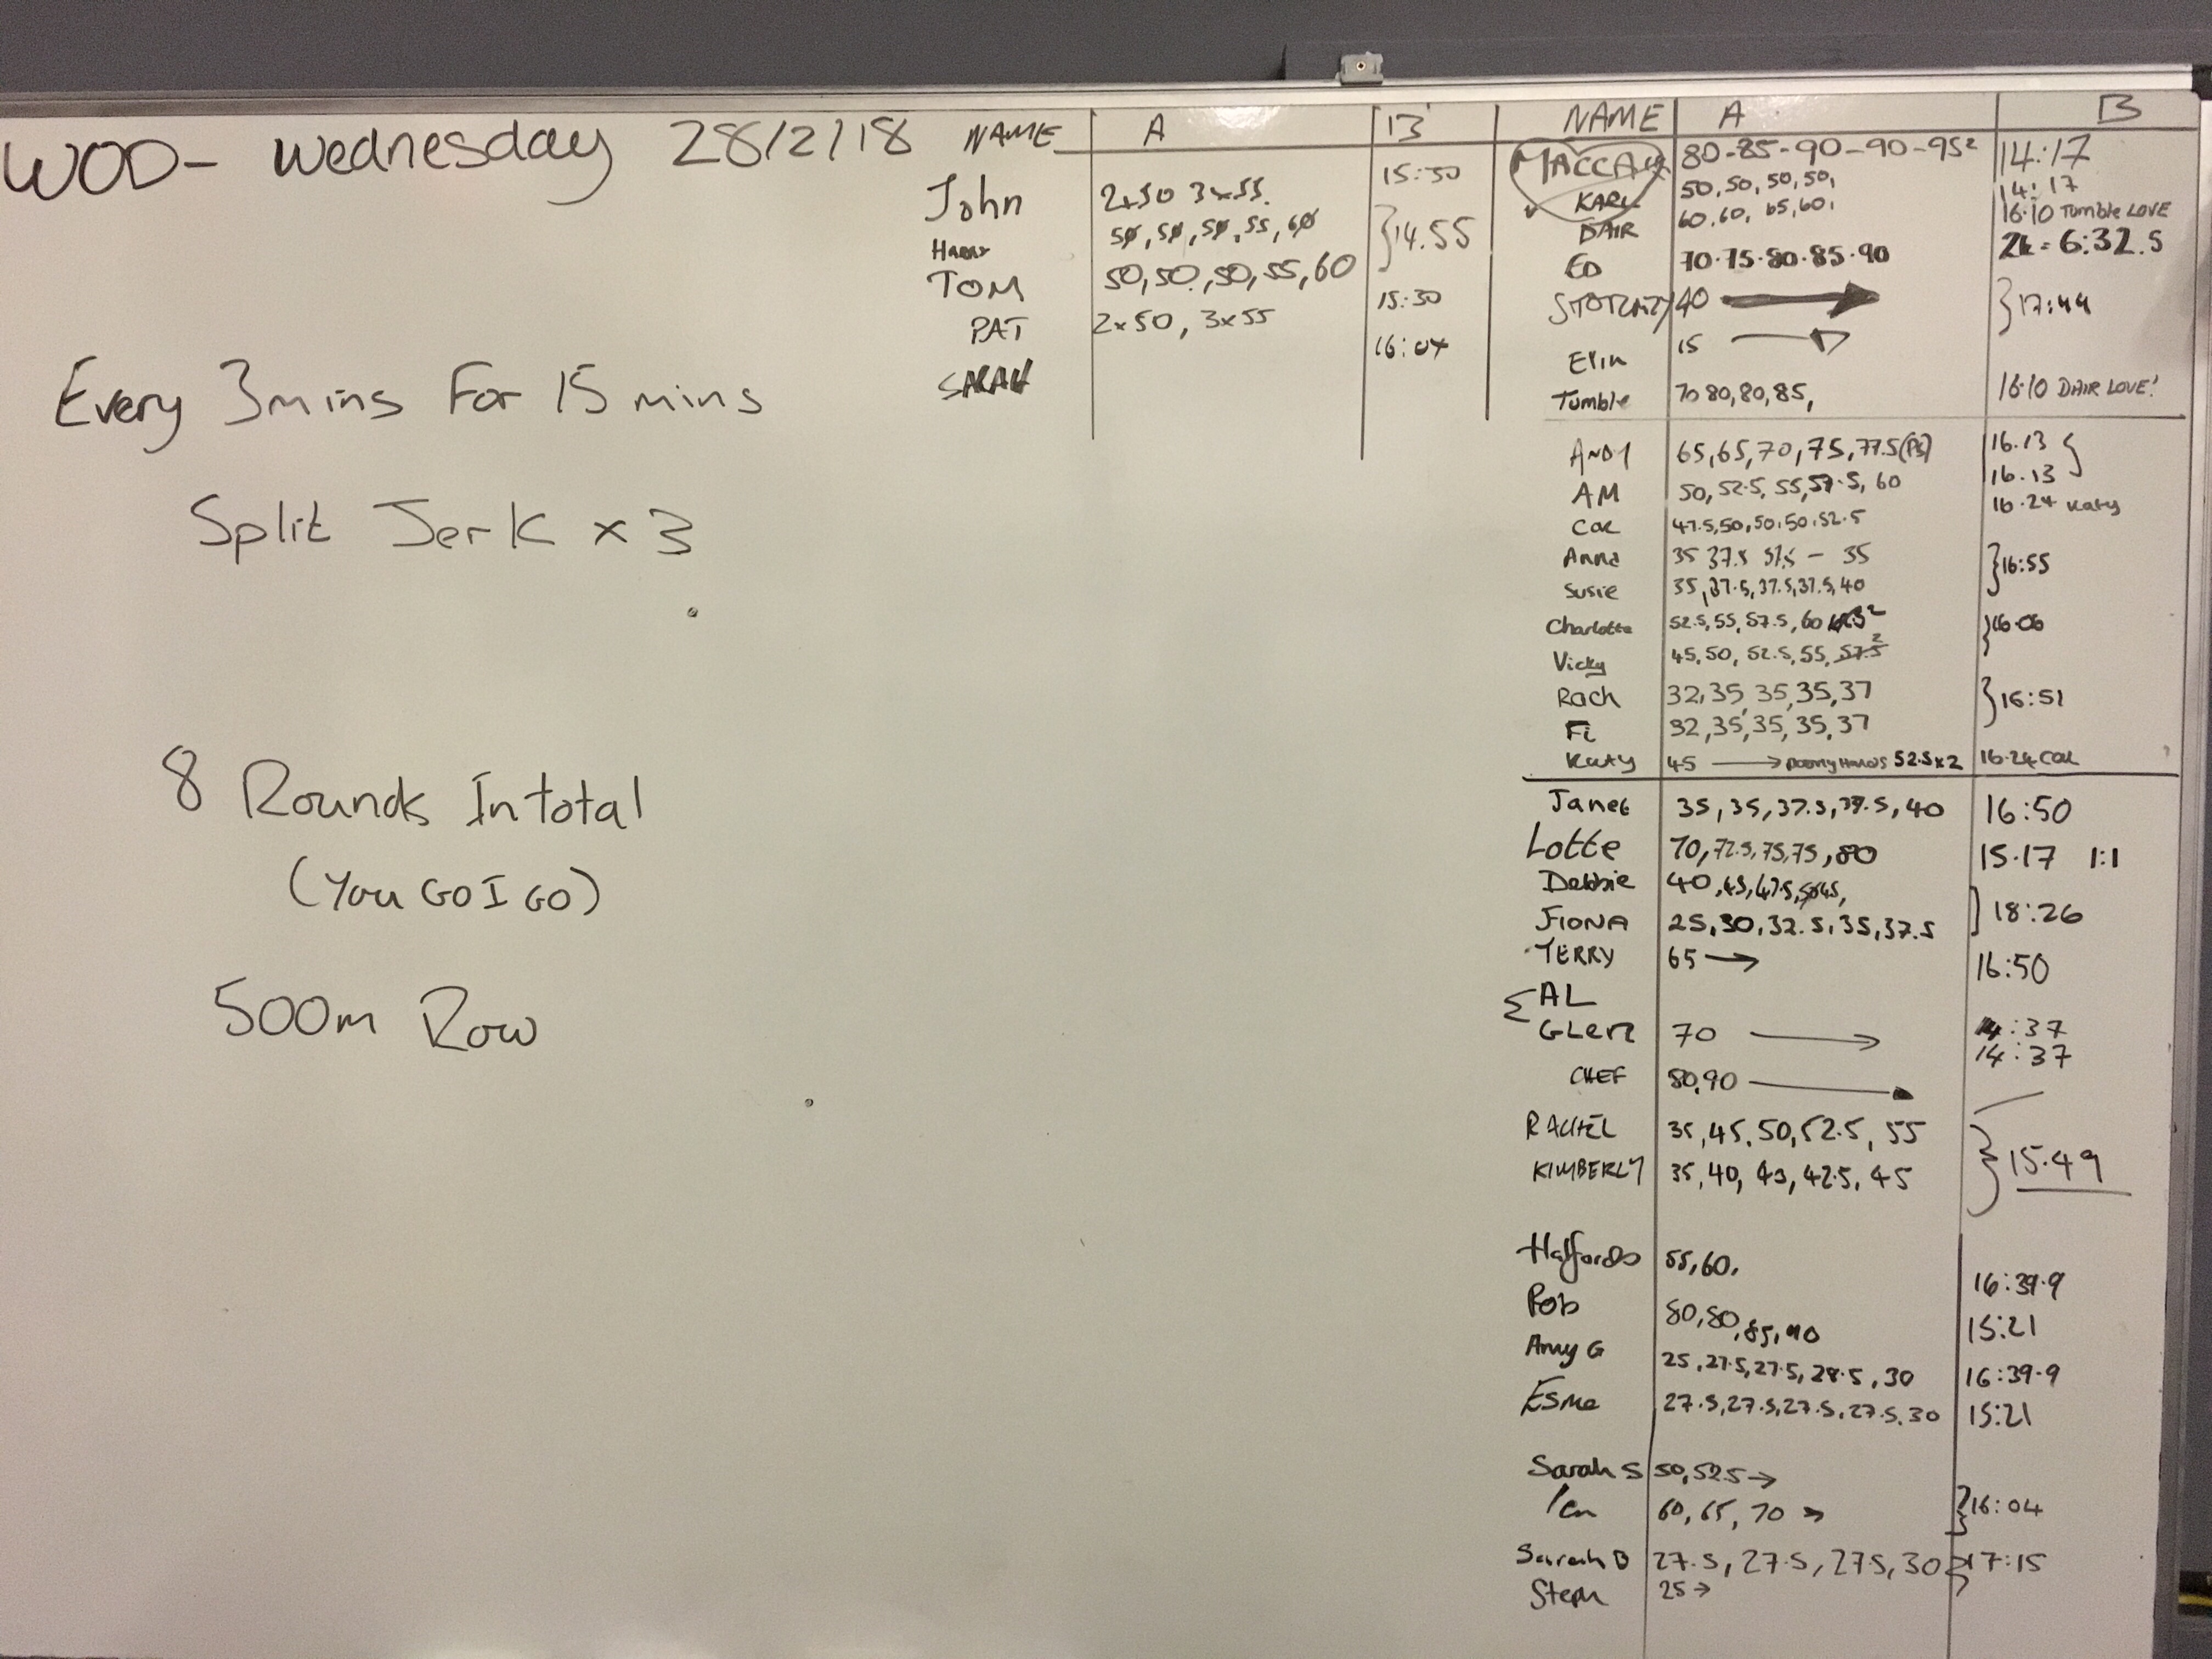 WOD - Wednesday 28/2/18
Every 3mins For 15 mins
Split Jerk x 3
8 Rounds In total
(You GO I GO)
500m Row
NAME A B
John 2x50 3x55. 15:30
Harry 50, 50, 50, 55, 60 }14.55
TOM 50, 50, 50, 55, 60
PAT 2x50, 3x55 15:30
SARAH 16:04
NAME A B
MACCA 80-85-90-90-95² 14:17
KARL 50, 50, 50, 50, 14:17
DAIR 60, 60, 65, 60, 16.10 Tumble LOVE
ED 70.75.80.85.90 2k = 6:32.5
40 → }17:44
Elin 15 →
Tumble 70 80, 80, 85, 16.10 DAIR LOVE!
ANDY 65, 65, 70, 75, 77.5 (PB) 16.13 }
AM 50, 52.5, 55, 57.5, 60 16.13
Cae 47.5, 50, 50, 50, 52.5 16.24 Katy
Anna 35 37.5 37.5 - 35 }16:55
Susie 35, 37.5, 37.5, 37.5, 40
Charlotte 52.5, 55, 57.5, 60 62.5² }16.06
Vicky 45, 50, 52.5, 55, 57.5²
Rach 32, 35, 35, 35, 37 }16:51
Fi 32, 35, 35, 35, 37
Katy 45 → Hands 52.5x2 16.24 Cae
Janet 35, 35, 37.5, 37.5, 40 16:50
Lotte 70, 72.5, 75, 75, 80 15.17 1:1
Debbie 40, 45, 47.5, 45, ] 18:26
FIONA 25, 30, 32.5, 35, 37.5
TERRY 65 → 16:50
{ AL
GLEN 70 → 14:37
14:37
CHEF 80, 90 →
RACHEL 35, 45, 50, 52.5, 55 } 15.49
KIMBERLY 35, 40, 43, 42.5, 45
Halfords 55, 60, 16:39.9
Rob 80, 80, 85, 90 15:21
Amy G 25, 27.5, 27.5, 28.5, 30 16:39.9
Esme 27.5, 27.5, 27.5, 27.5, 30 15:21
Sarah S 50, 52.5 →
Ian 60, 65, 70 → }16:04
Sarah B 27.5, 27.5, 27.5, 30 }17:15
Steph 25 →